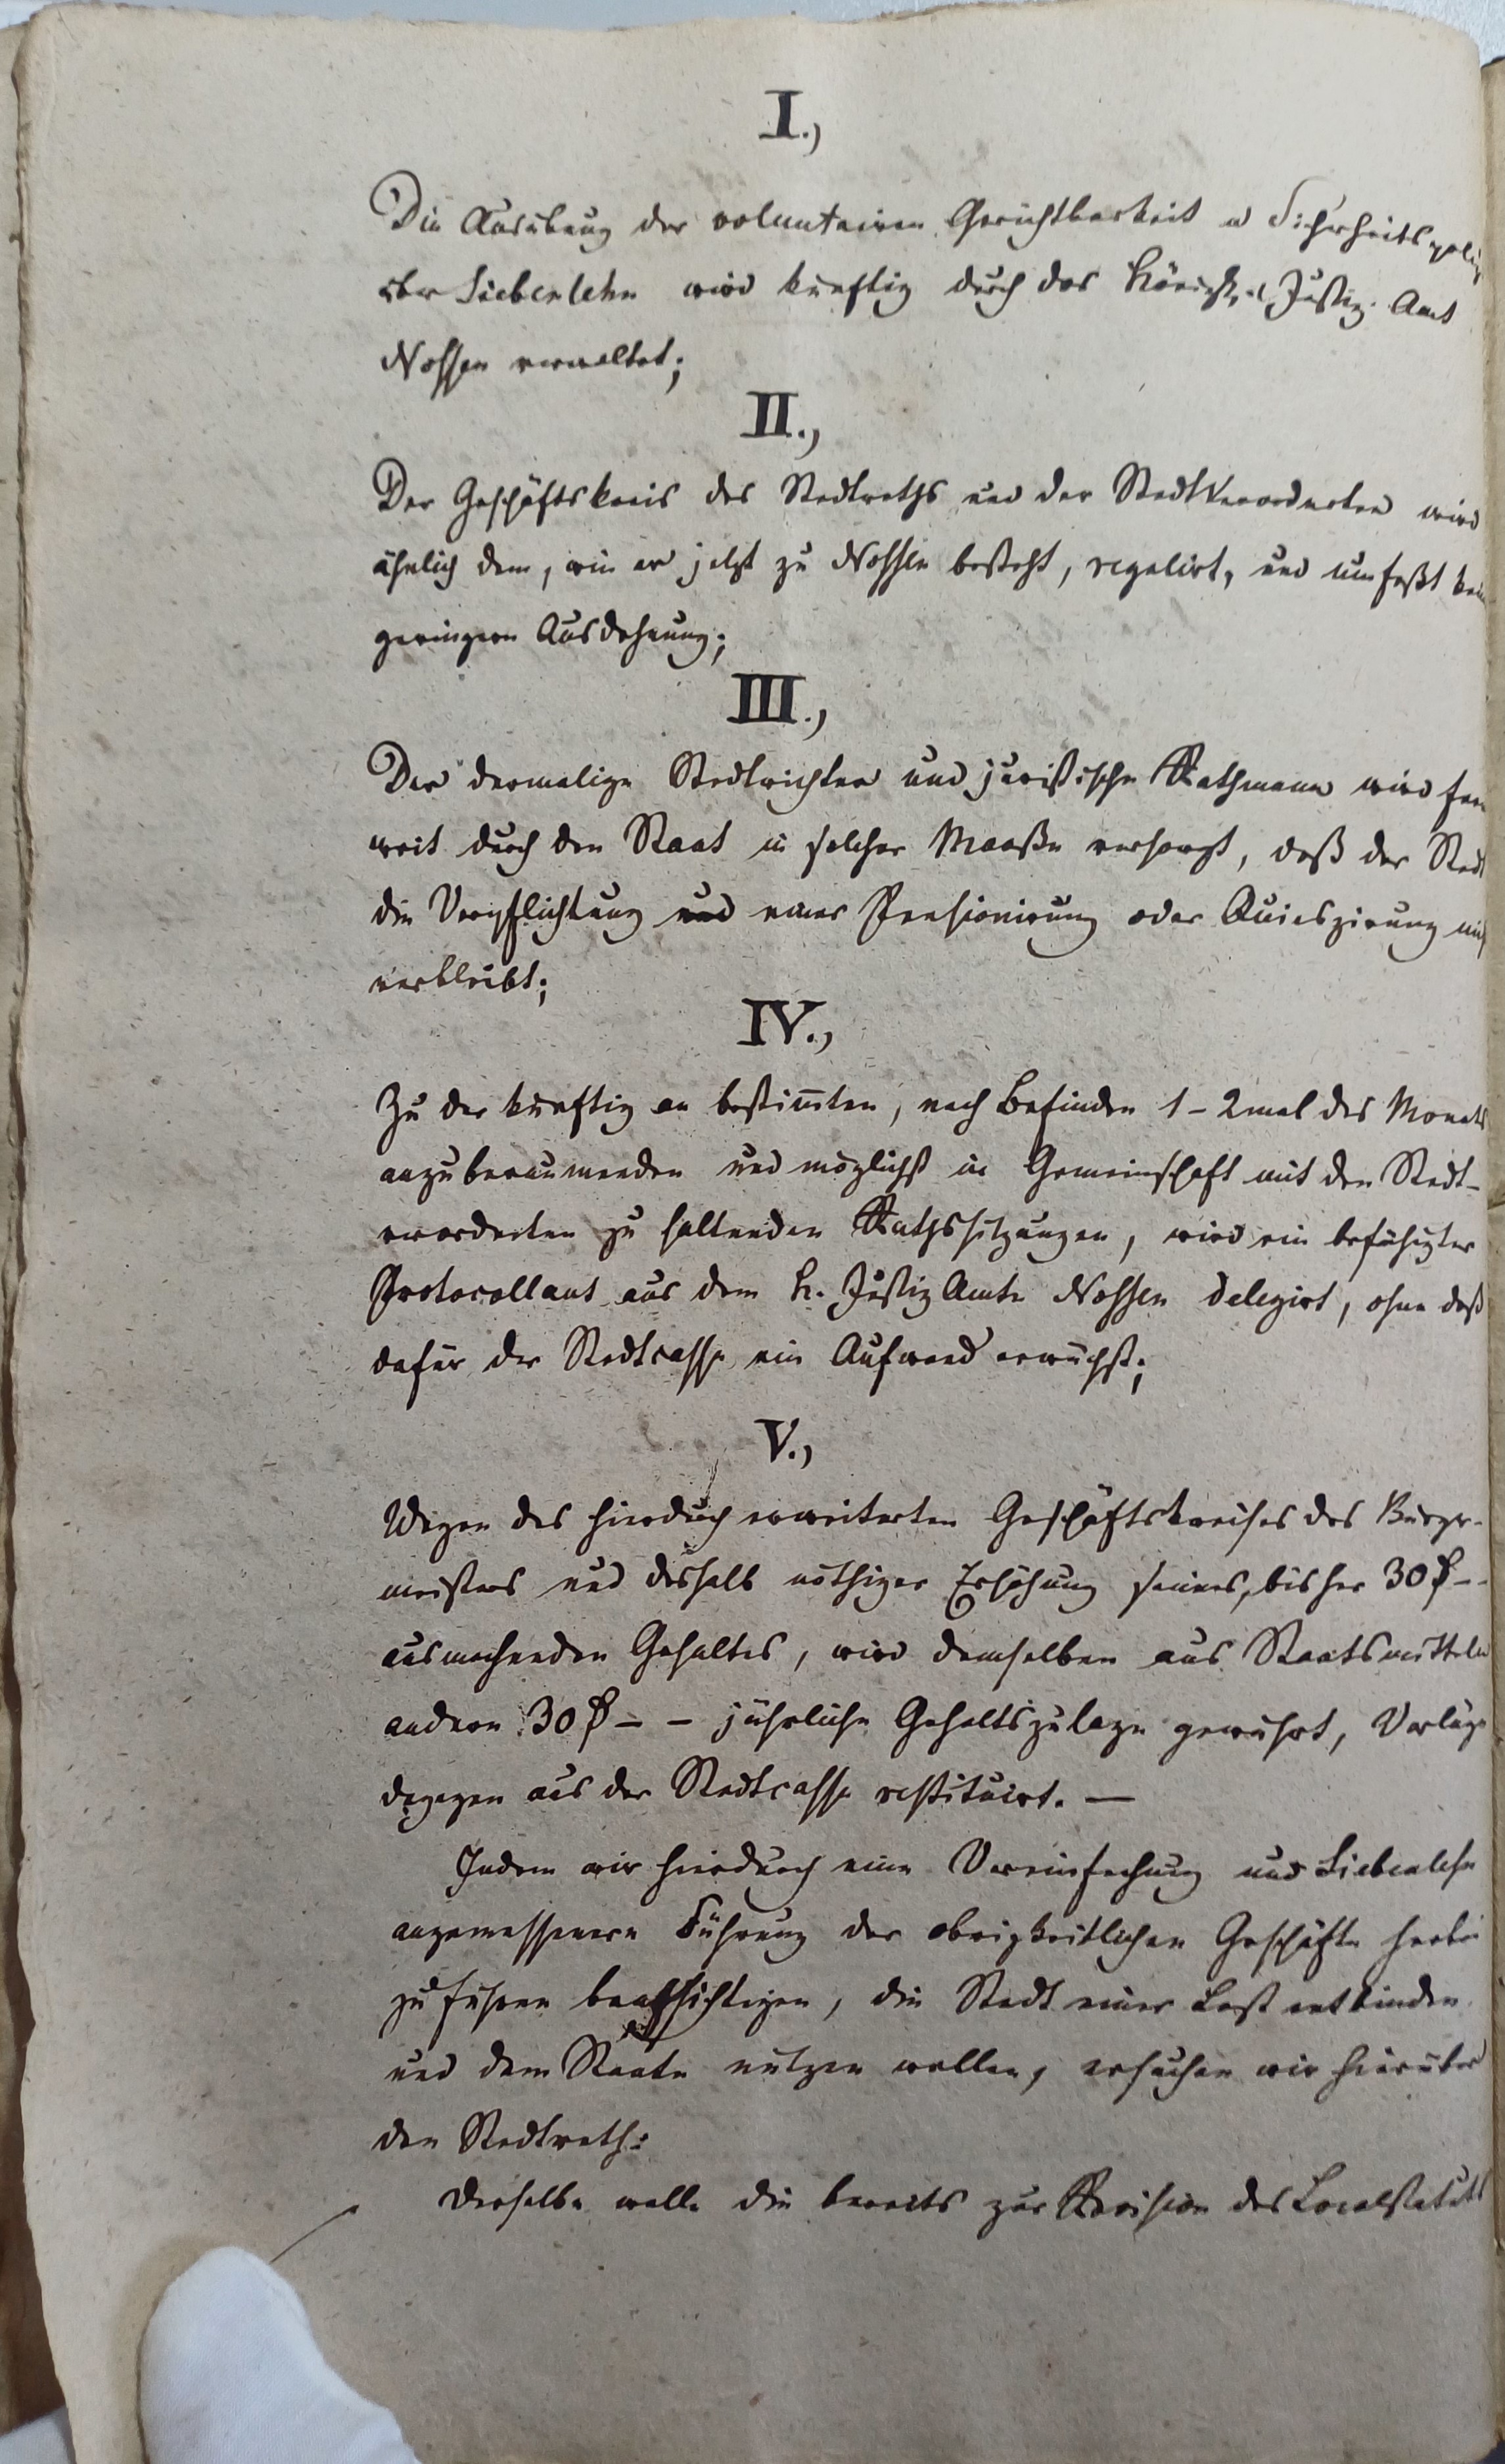 I.,
Die Ausübung der voluntairen Gerichtbarkeit u Sicherheitspoliz
über Siebenlehn wird künftig durch das Königl. Justiz-Amt
Nossen verwaltet;
II.,
Der Geschäftskreis des Stadtraths und der Stadtverordneten wird
ähnlich dem, wie er jetzt zu Nossen besteht, regulirt, und umfaßt kein
geringern Ausdehnung;
III.,
Der dermalige Stadtrichter und juristische Rathmann wird
weit durch den Staat in solcher Maaße versorgt, daß der Stadt
die Verpflichtung und einer Pensionirung oder Quieszirung nich
verbleibt;
IV.,
Zu der künftig an bestim̄ten, nach Befinden 1-2mal des Monats
anzuberaumenden und möglichst in Gemeinschaft mit den Stadt-
verordneten zu haltenden Rathssitzungen, wird ein befähigter
Protocollant aus dem K. Justiz Amte Nossen delegirt, ohne daß
dafür der Stadtcasse ein Aufwand erwächst;
V.,
Wegen des hierdurch erweiterten Geschäftskreises des Bürger-
meisters und deshalb nöthiger Erhöhung seines, bisher 30 ₰ - -
ausmachenden Gehaltes, wird demselben aus Staatsmitteln
andern 30 ₰ - - jährliche Gehaltszulage gewährt, Verläge
dagegen aus der Stadtcasse restituirt. —
Indem wir hierdurch eine Vereinfachung und Siebenlehn
angemessenere Führung der obrigkeitlichen Geschäfte herbei
zu führen beabsichtigen, die Stadt einer Last entbinden
und dem Staate nutzen wollen, ersuchen wir hierüber
den Stadtrath:
Derselbe wolle die bereits zur Revision des Localstatuts